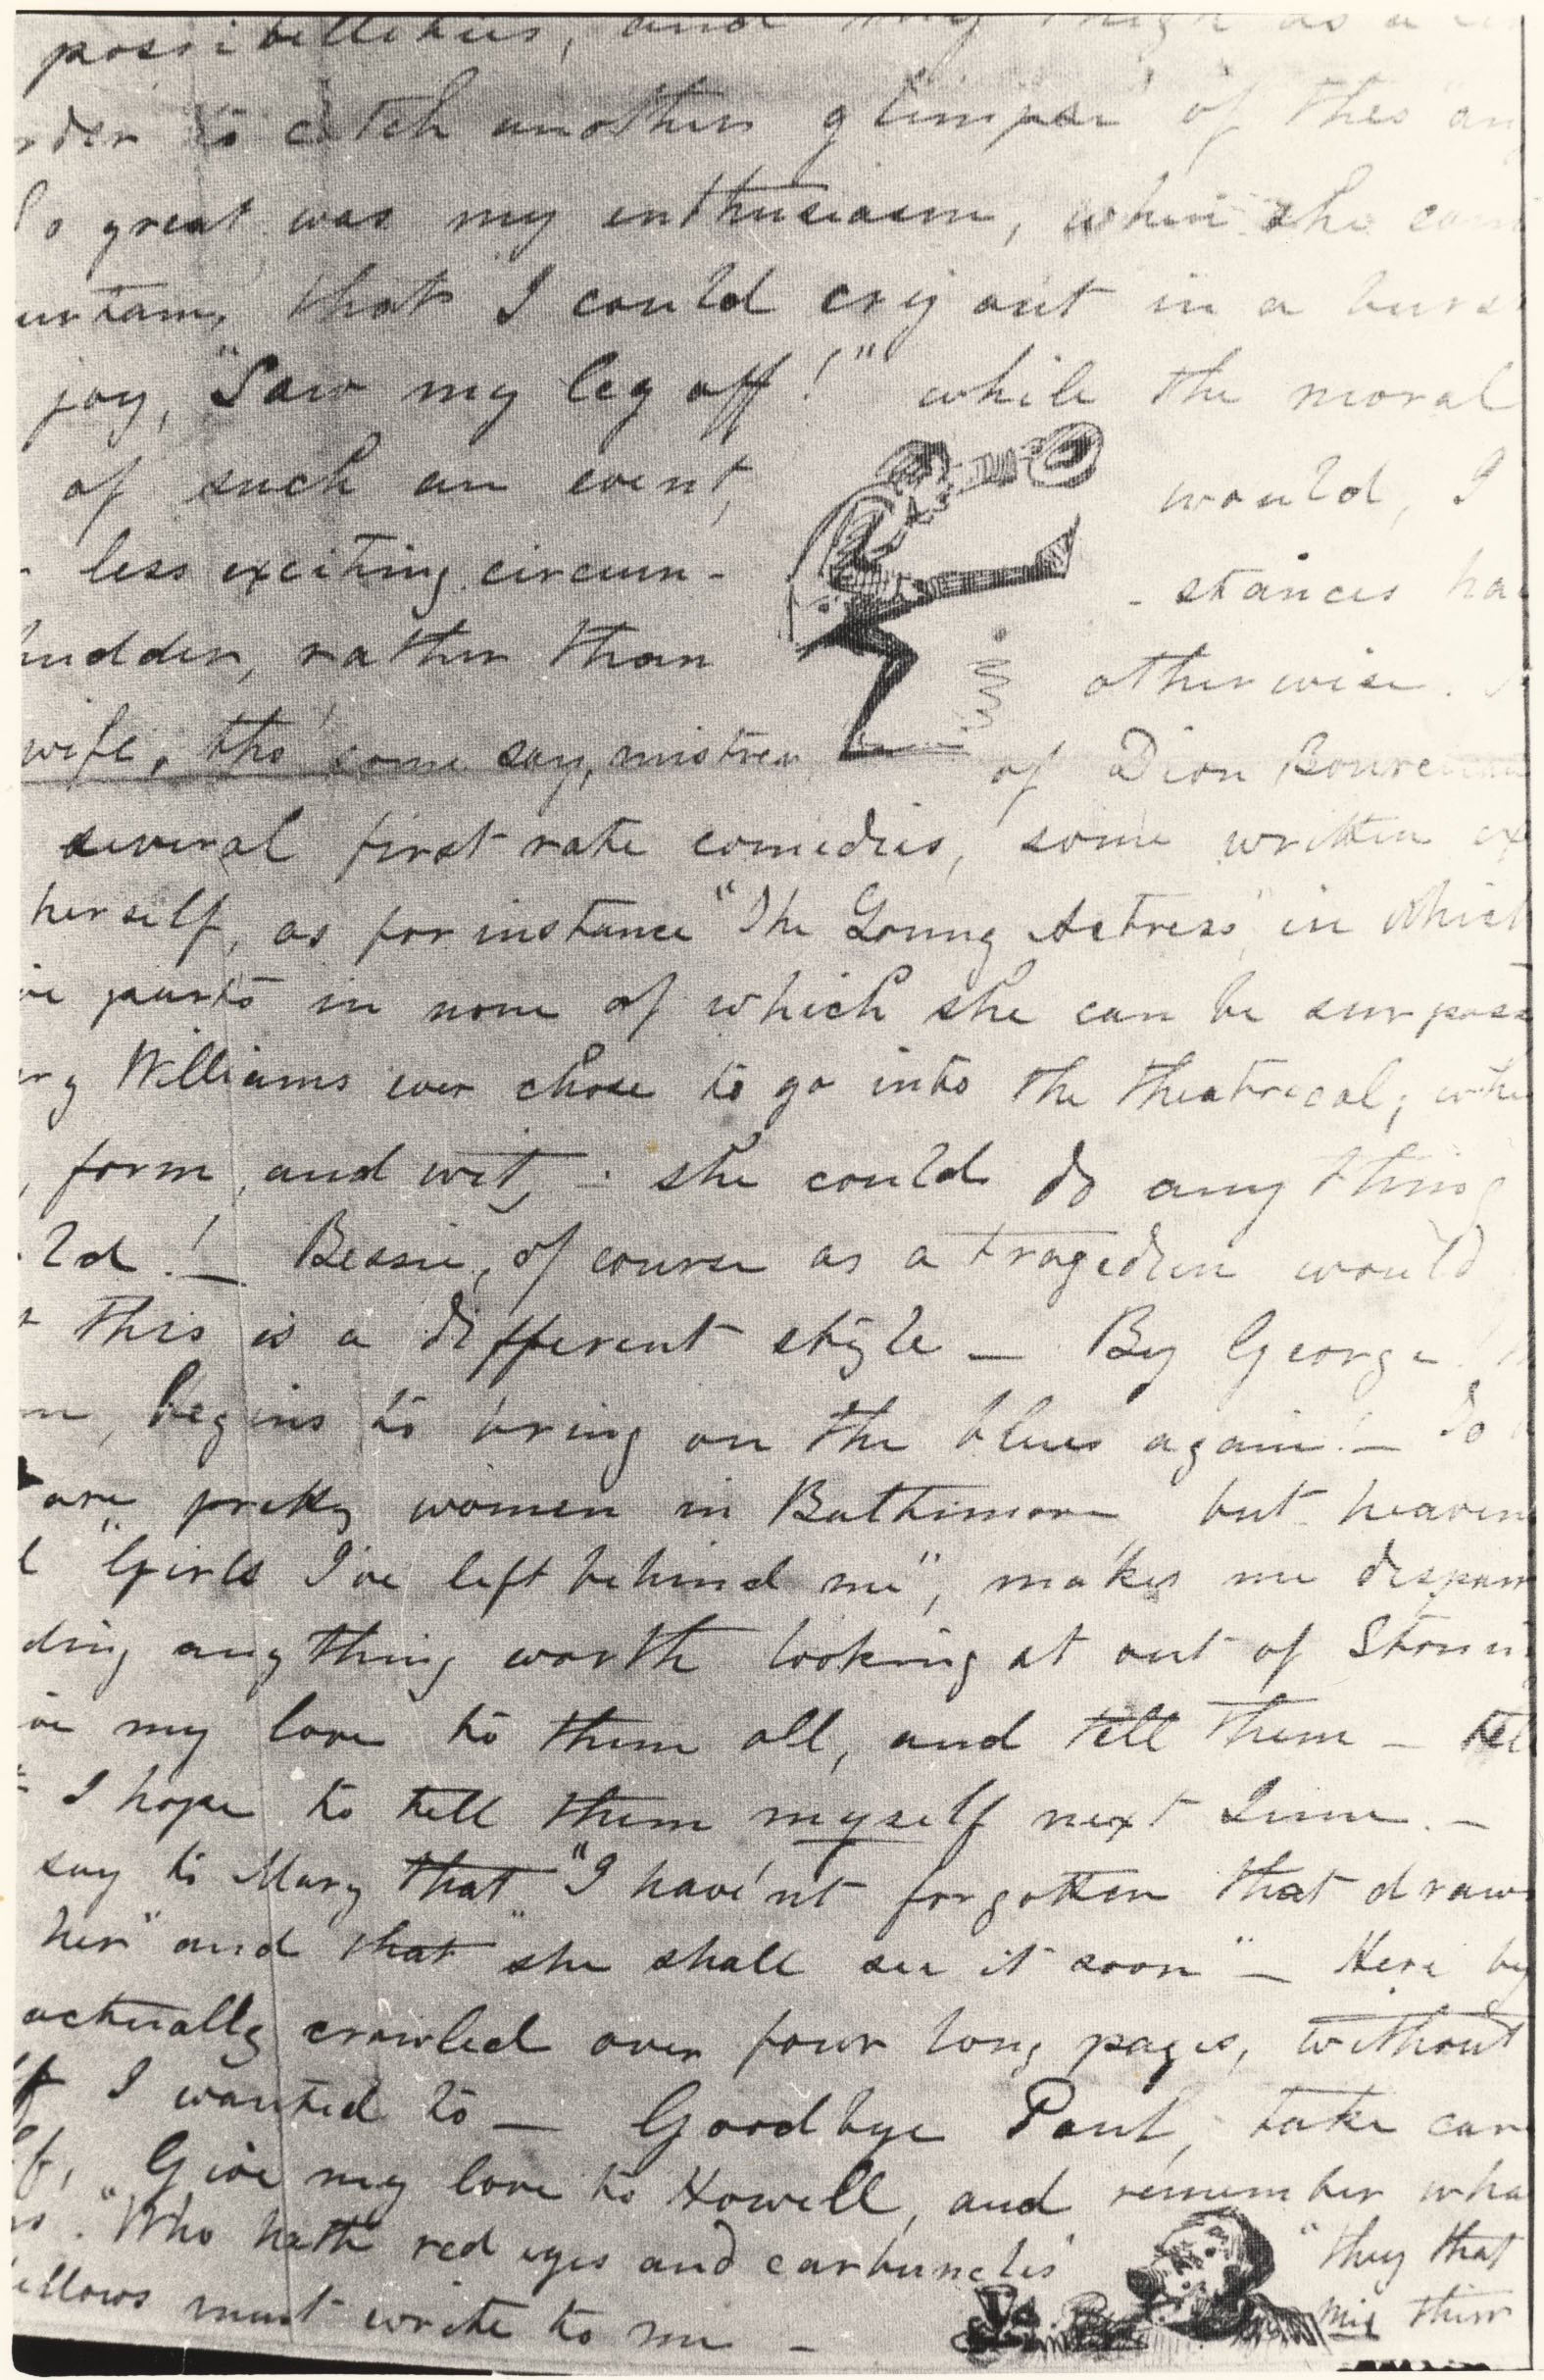 possibillities, and my thigh as a
rder to catch another glimpse of this an
So great was my enthusiasm, when she cam
urtain, that I could cry out in a burs
joy, "Saw my leg off!" while the moral
of such an event, would, I
less exciting circum- -stances ha
hudder, rather than otherwise.
wife, tho' some say, mistress of Dion Bourcicau
several first rate comedies, some written ex
herself, as for instance "The Young Actress" in which
ve parts in none of which she can be surpass
ry Williams ever chose to go into the theatrical, whe
, form, and wit, - she could do any thing
ld! - Bessie, of course as a tragedien would
t this is a different style - By George!
m, begins to bring on the blues again! - So
are pretty women in Balthimore but heaven
l "Girls I've left behind me", makes me despair
ding anything worth looking at out of Stoni
ve my love to them all, and tell them - tel
t I hope to tell them myself next June. -
say to Mary that "I have'nt forgotten that draw
her" and that "she shall see it soon" - Here by
actually crawled over four long pages, without
lf I wanted to - Goodbye Paul, take car
lf, Give my love to Howell, and remember wha
rs. "Who hath red eyes and carbuncles" "they that
ellows must write to me - mix their